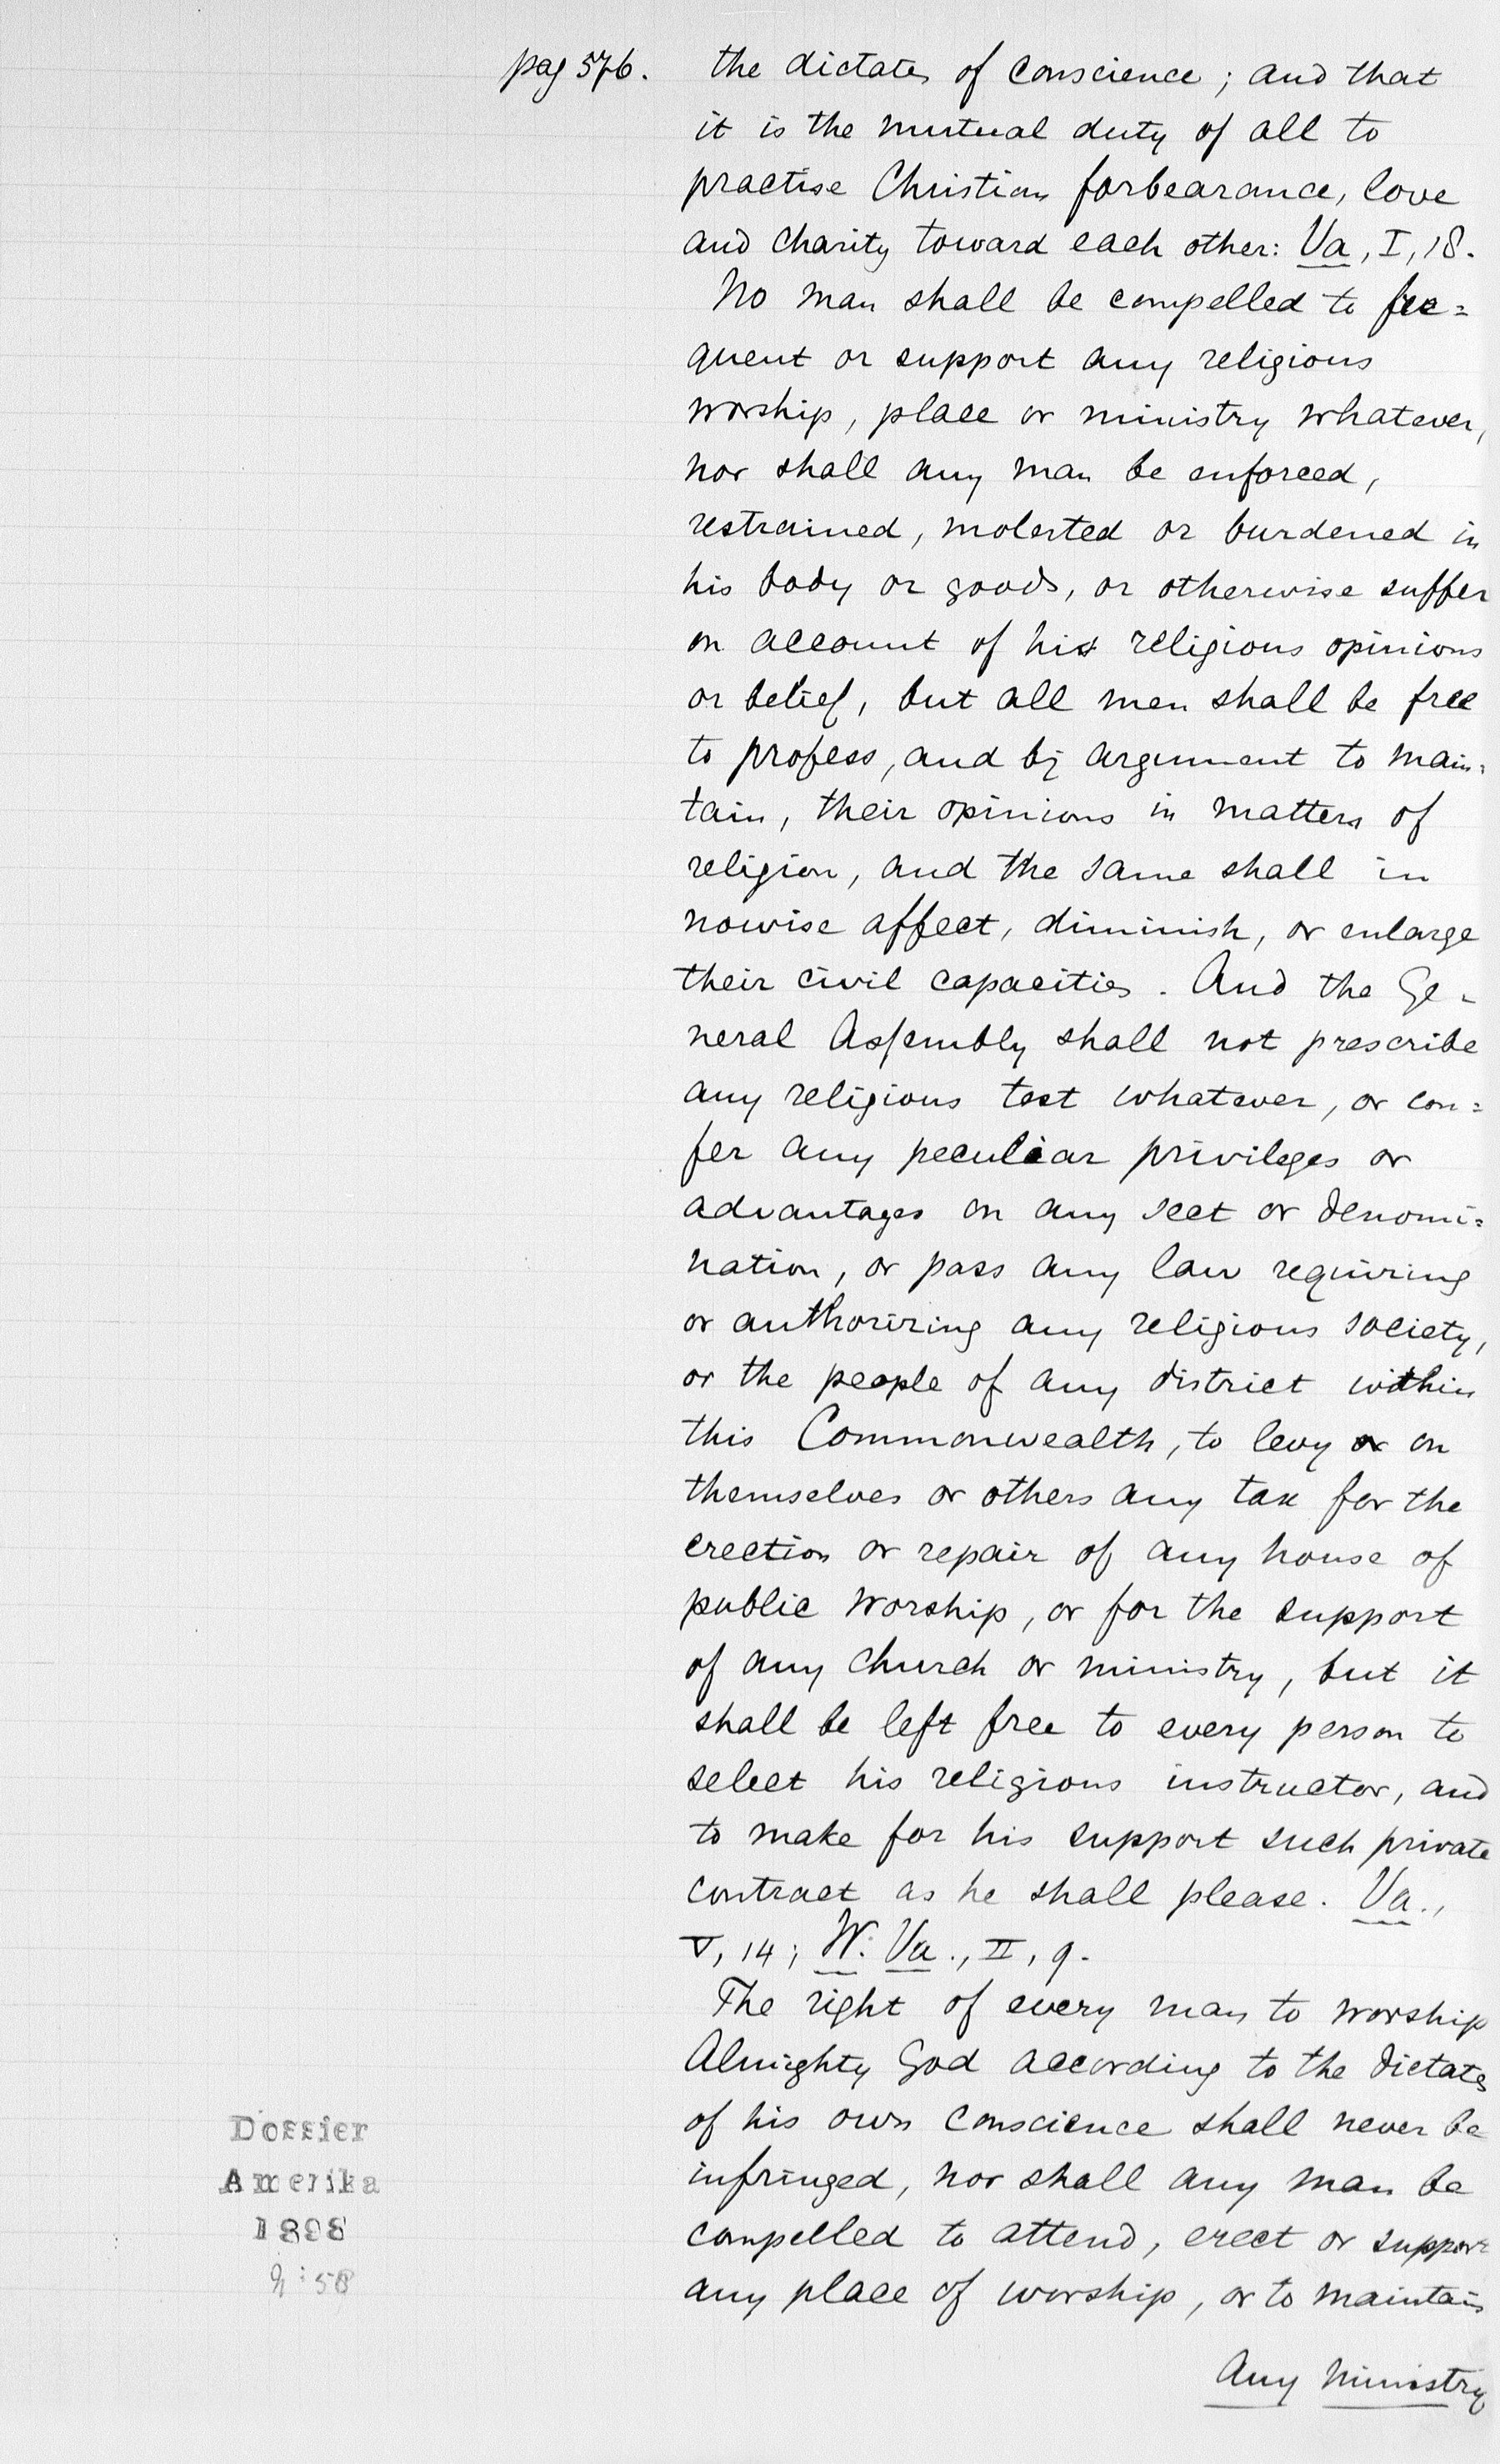 pag 576. the dictates of conscience; and that
it is the mutual duty of all to
practise Christian forbearance, love
and charity toward each other: Va, I, 18.
No man shall be compelled to fre=
quent or support any religious
worship, place or ministry whatever,
nor shall any man be enforced,
restrained, molested or burdened in
his body or goods, or otherwise suffer
on account of his religious opinions
or belief, but all men shall be free
to profess, and by argument to main-
tain, their opinions in matters of
religion, and the same shall in
nowise affect, diminish, or enlarge
their civil capacities. And the Ge-
neral Assembly shall not prescribe
any religious test whatever, or con=
fer any peculiar privileges or
advantages on any sect or denomi=
nation, or pass any law requiring
or authorizing any religious society,
or the people of any district within
this Commonwealth, to levy on
themselves or others any tax for the
erection or repair of any house of
public worship, or for the support
of any church or ministry, but it
shall be left free to every person to
select his religious instructor, and
to make for his support such private
contract as he shall please. Va.,
V, 14; W. Va., II, 9.
The right of every man to worship
Almighty God according to the dictates
of his own conscience shall never be
infringed, nor shall any man be
compelled to attend, erect or support
any place of worship, or to maintain
any ministry
Dossier
Amerika
1898
9:58